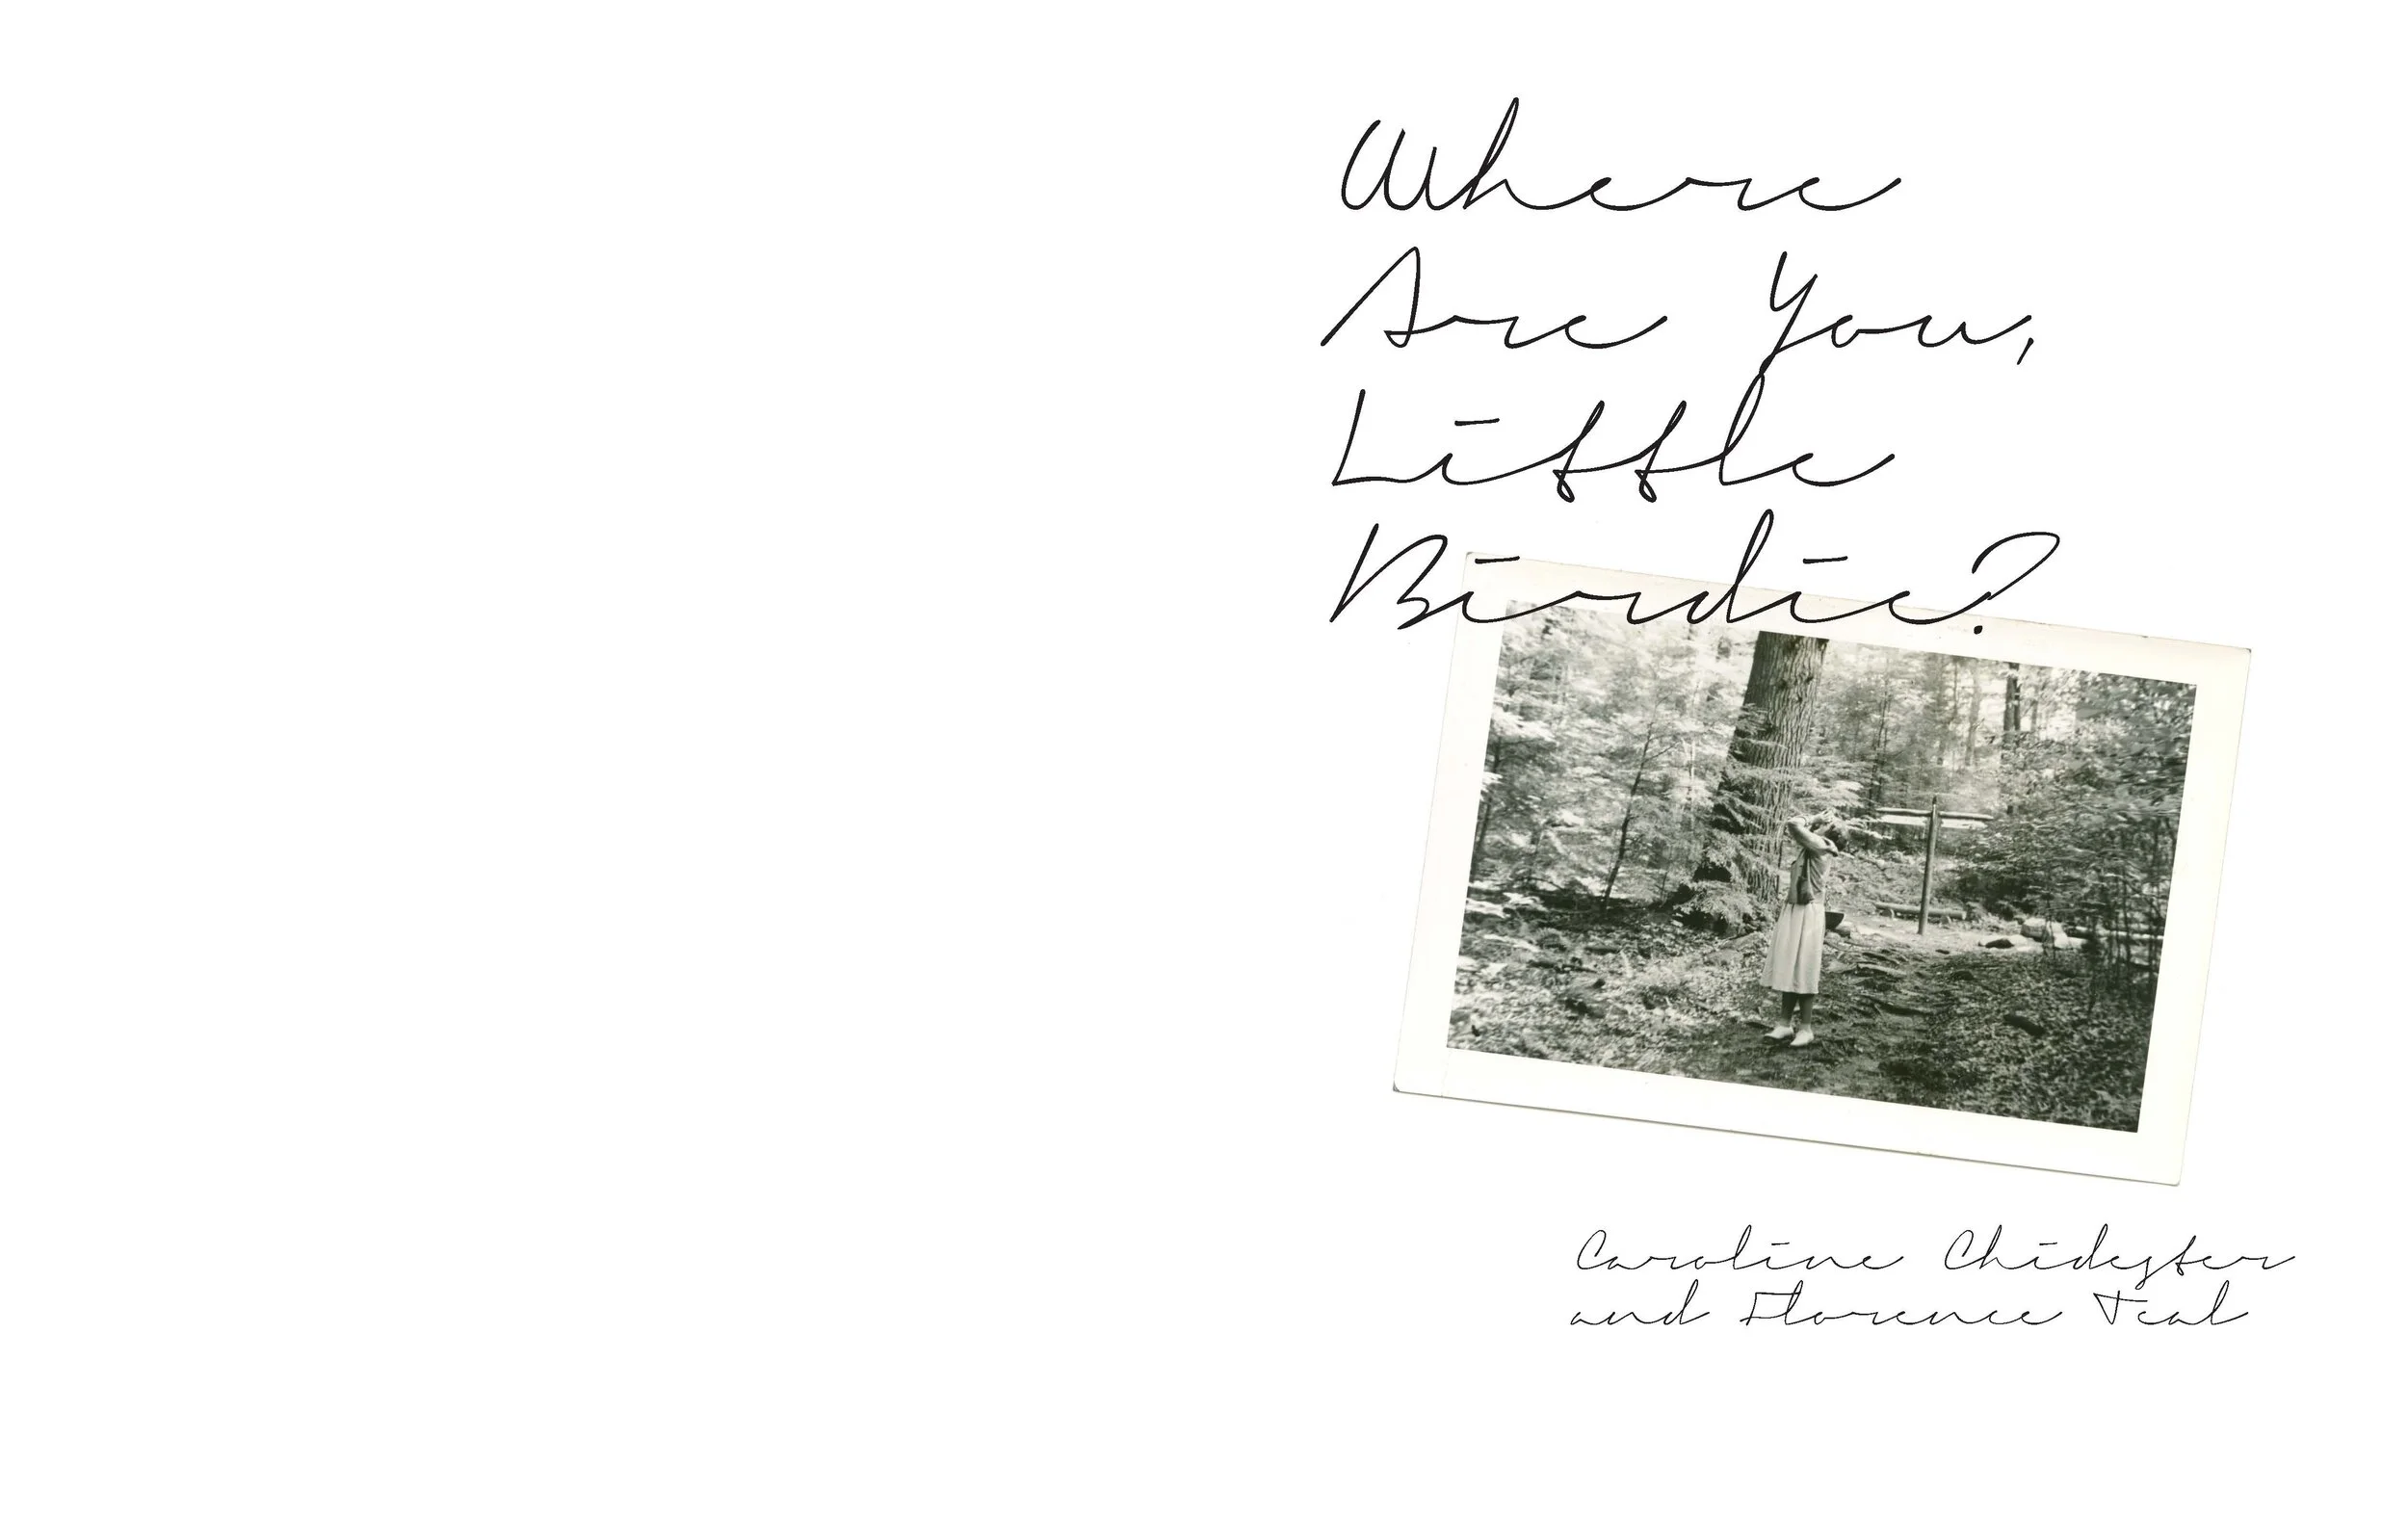 Where
Are You,
Little
Birdie?
Caroline Chidester
and Florence Teal